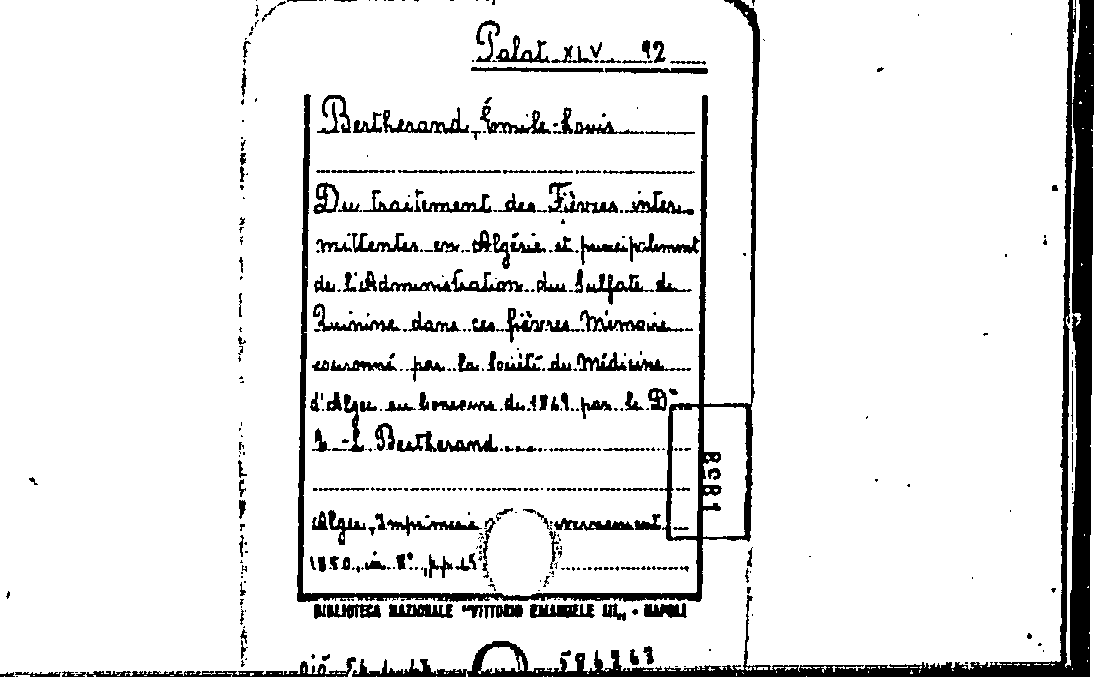 Palat. XLV 92
Bertherand, Émile-Louis
Du traitement des Fièvres inter-
mittentes en Algérie et principalement
de l'Administration du Sulfate de
Quinine dans ces fièvres Mémoire
couronné par la Société de Médicine
d'Alger au Concours de 1849 par le Dr
E.-L. Bertherand...
Alger, Imprimerie vernement
1850, in 8°, pp.
BIBLIOTECA NAZIONALE "VITTORIO EMANUELE III" - NAPOLI
già
586363